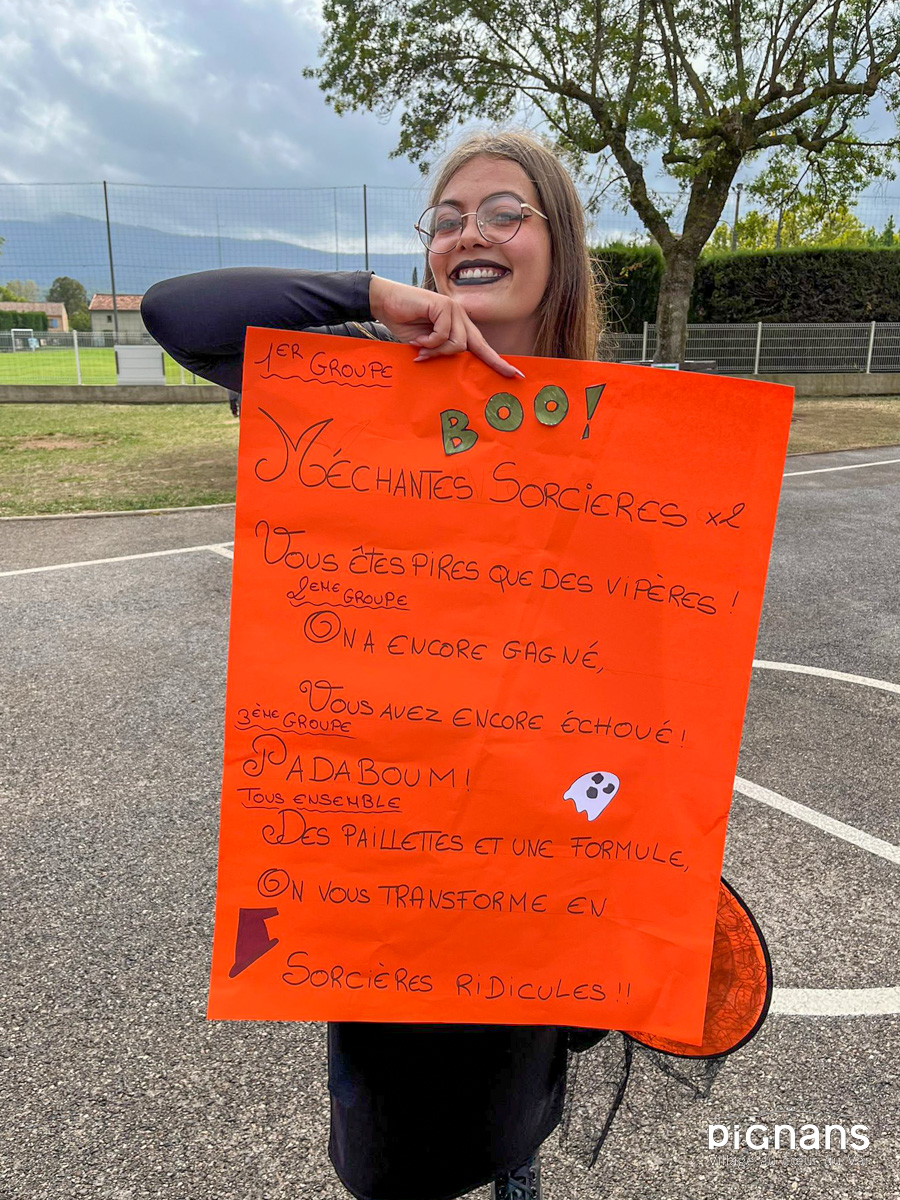 1ER GROUPE
BOO!
MÉCHANTES SORCIERES x2
VOUS ÊTES PIRES QUE DES VIPÈRES !
2EME GROUPE
ON A ENCORE GAGNÉ,
VOUS AVEZ ENCORE ÉCHOUÉ !
3ÈME GROUPE
PADABOUM !
TOUS ENSEMBLE
DES PAILLETTES ET UNE FORMULE,
ON VOUS TRANSFORME EN
SORCIÈRES RIDICULES !!
pignans